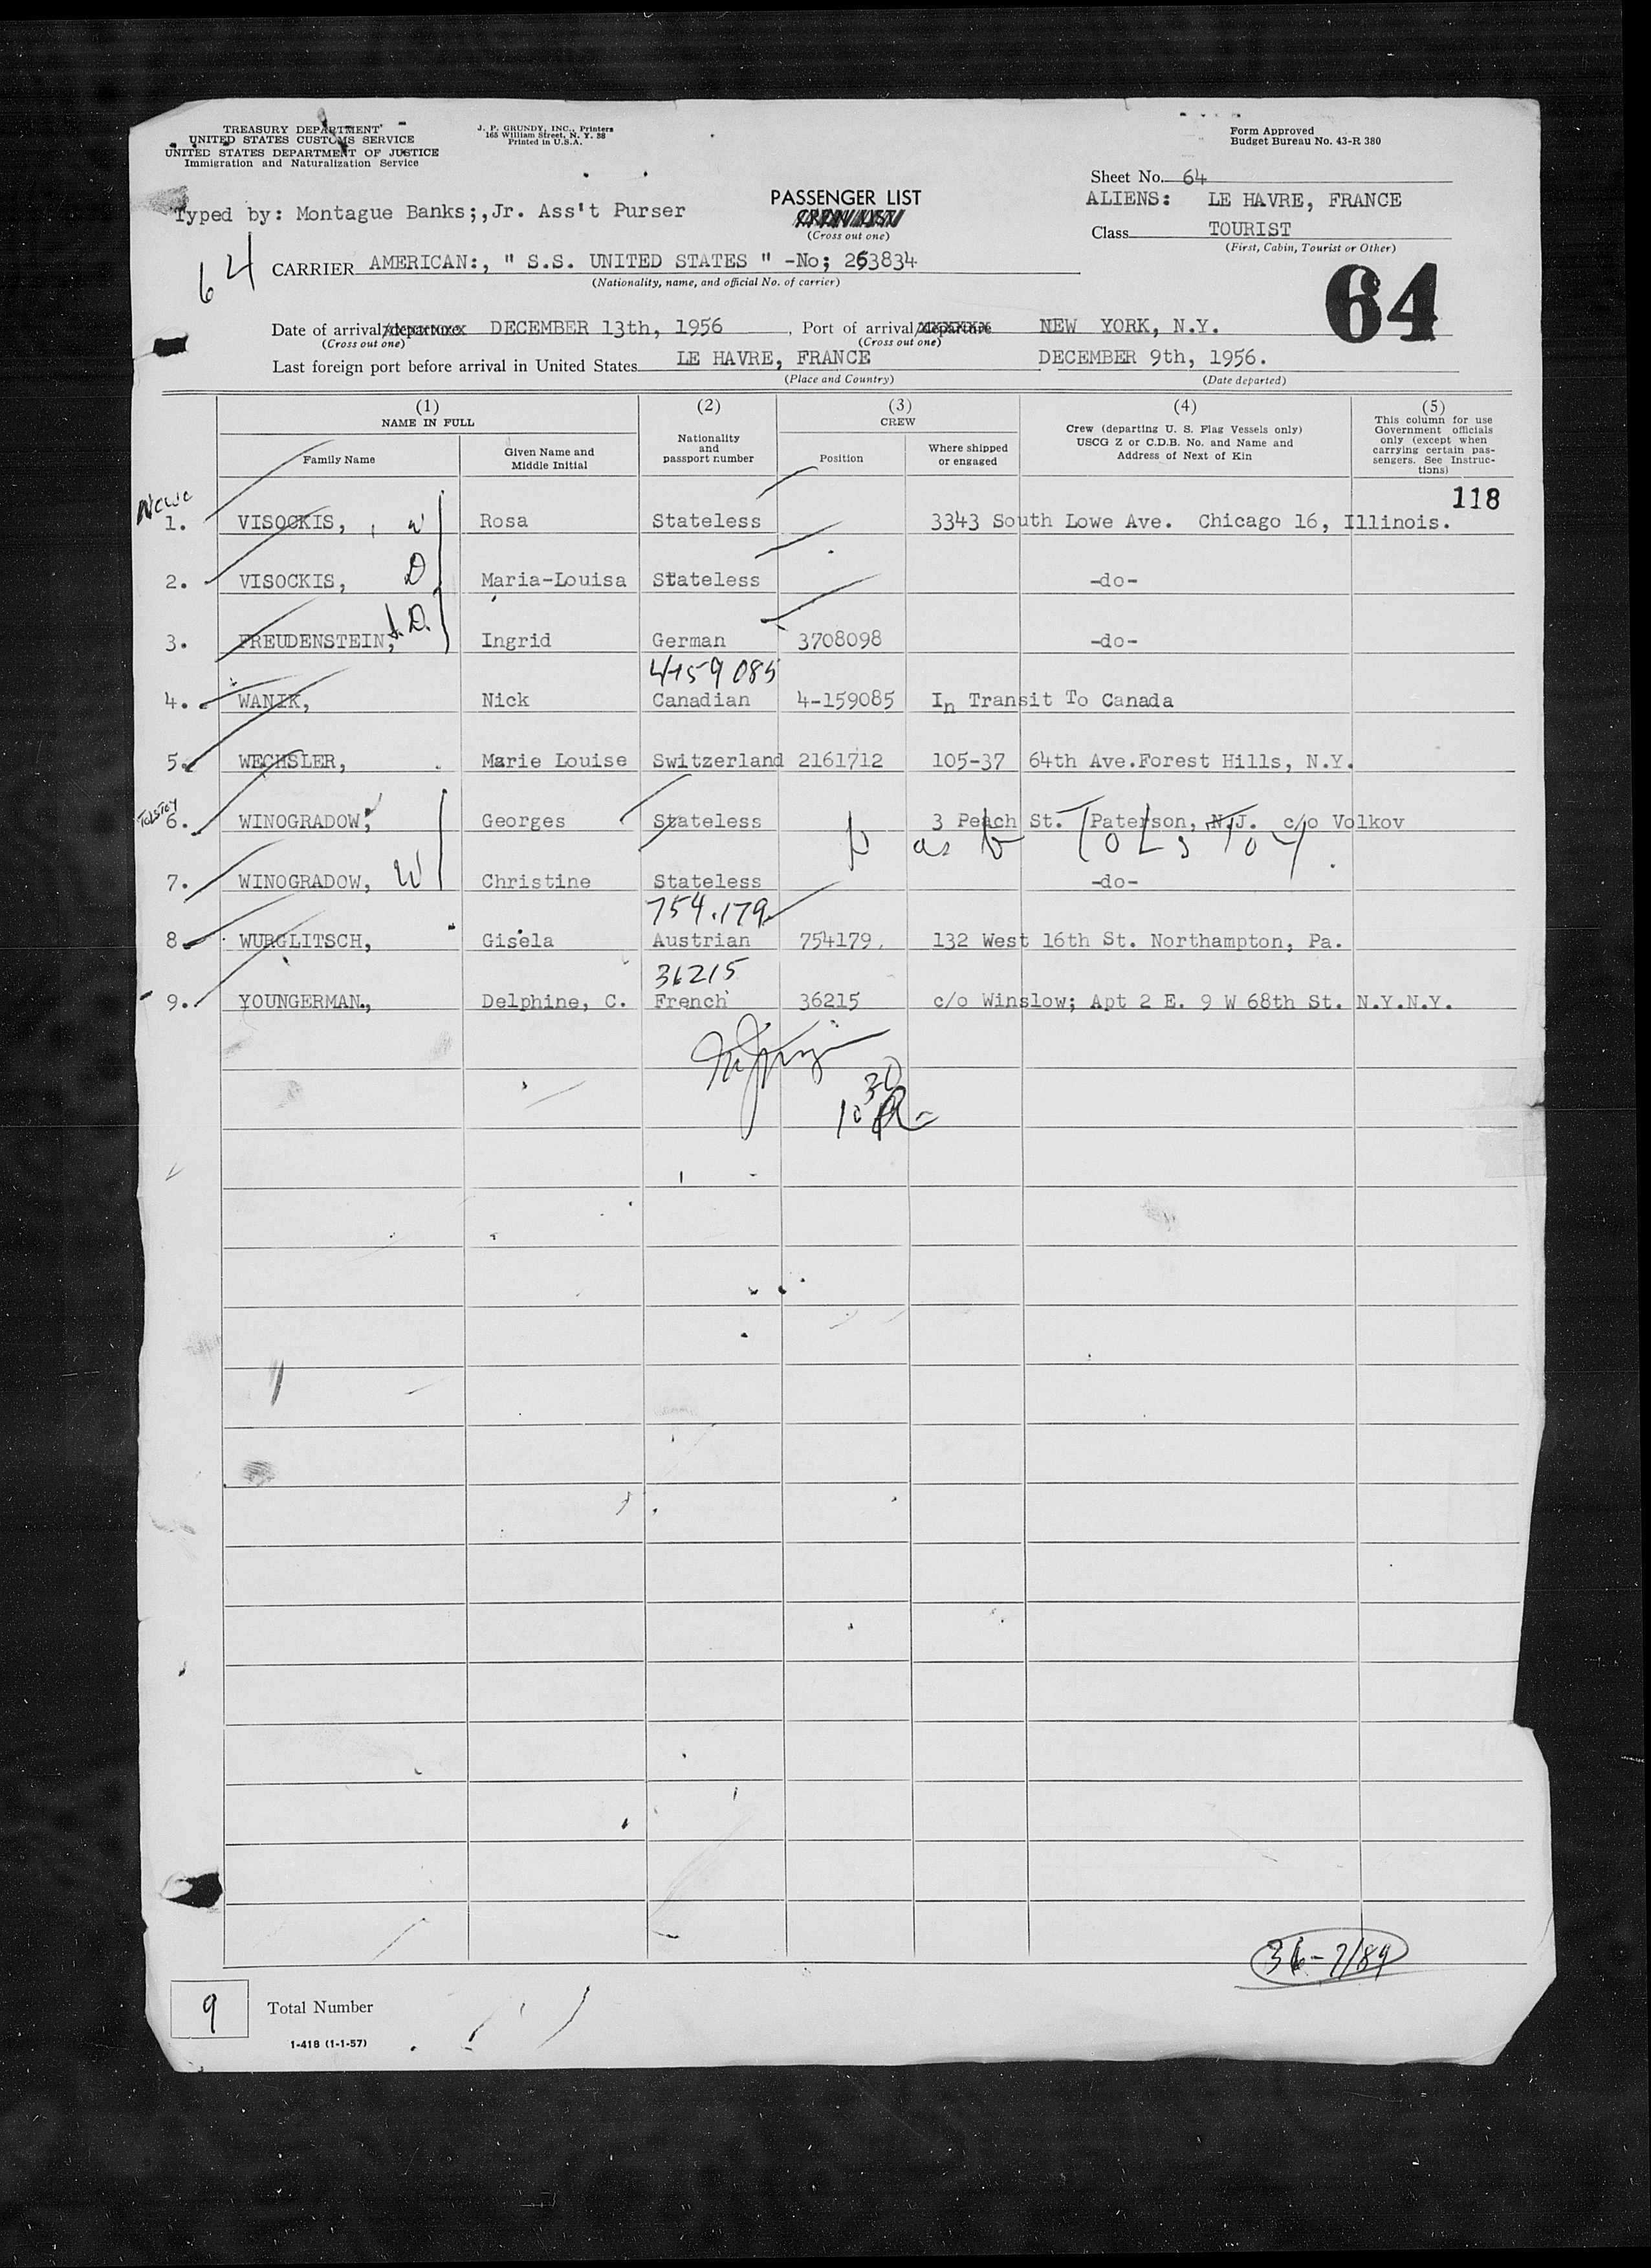 TREASURY DEPARTMENT
UNITED STATES CUSTOMS SERVICE
UNITED STATES DEPARTMENT OF JUSTICE
Immigration and Naturalization Service
J. P. GRUNDY, INC., Printers
165 William Street, N. Y. 38
Printed in U.S.A.
Form Approved
Budget Bureau No. 43-R 380
Sheet No. 64
Typed by: Montague Banks;,Jr. Ass't Purser
PASSENGER LIST
CREW LIST
(Cross out one)
ALIENS: LE HAVRE, FRANCE
Class TOURIST
(First, Cabin, Tourist or Other)
64
CARRIER AMERICAN:, " S.S. UNITED STATES " -No; 263834
(Nationality, name, and official No. of carrier)
64
Date of arrival/departure DECEMBER 13th, 1956, Port of arrival/departure NEW YORK, N.Y.
(Cross out one) (Cross out one)
Last foreign port before arrival in United States LE HAVRE, FRANCE DECEMBER 9th, 1956.
(Place and Country) (Date departed)
(1) NAME IN FULL
Family Name
Given Name and Middle Initial
(2)
Nationality and passport number
(3) CREW
Position
Where shipped or engaged
(4)
Crew (departing U. S. Flag Vessels only)
USCG Z or C.D.B. No. and Name and
Address of Next of Kin
(5)
This column for use
Government officials
only (except when
carrying certain pas-
sengers. See Instruc-
tions)
118
1. VISOCKIS, W Rosa Stateless 3343 South Lowe Ave. Chicago 16, Illinois.
2. VISOCKIS, D Maria-Louisa Stateless -do-
3. FREUDENSTEIN, D. Ingrid German 3708098 -do-
4-159085
4. WANIK, Nick Canadian 4-159085 In Transit To Canada
5. WECHSLER, Marie Louise Switzerland 2161712 105-37 64th Ave.Forest Hills, N.Y.
TOLSTOY
6. WINOGRADOW, Georges Stateless 3 Peach St. Paterson, N.J. c/o Volkov
TOLSTOY
7. WINOGRADOW, W Christine Stateless -do-
754.179
8. WURGLITSCH, Gisela Austrian 754179. 132 West 16th St. Northampton, Pa.
36215
9. YOUNGERMAN., Delphine, C. French 36215 c/o Winslow; Apt 2 E. 9 W 68th St. N.Y.N.Y.
10 30
9 Total Number
1-418 (1-1-57)